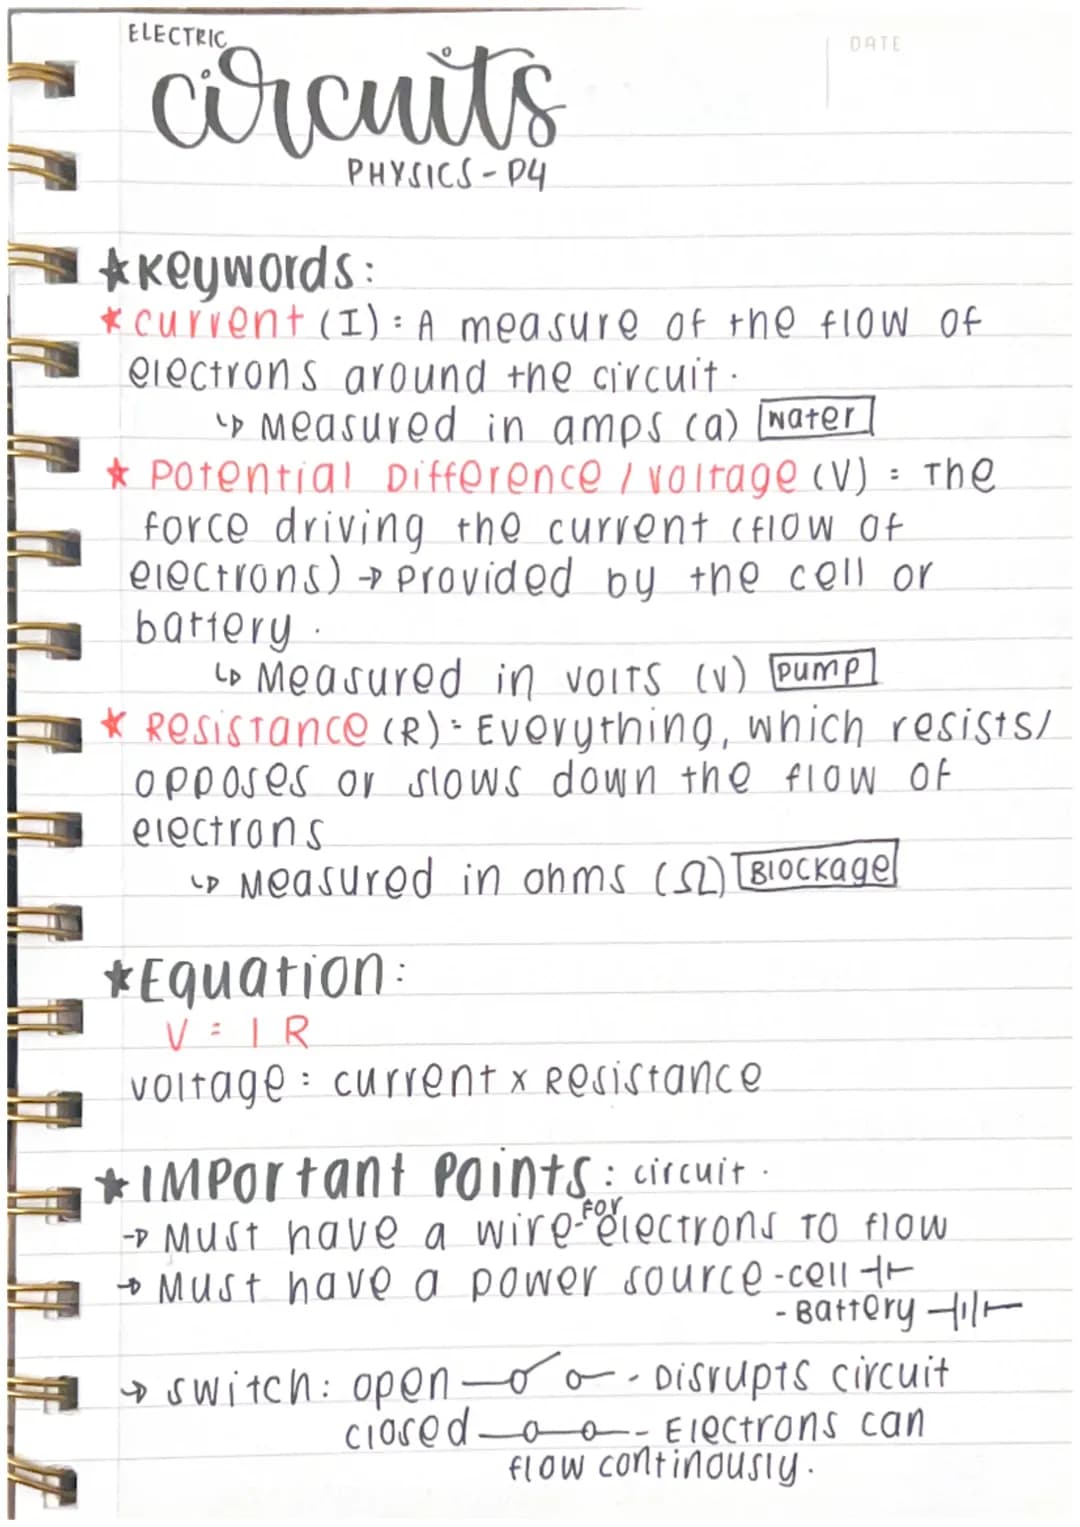 ELECTRIC
circuits
DATE
PHYSICS - P4
★ Keywords:
★ current (I) = A measure of the flow of
electrons around the circuit.
↳ Measured in amps (a) water
★ Potential Difference / voltage (V) = The
force driving the current (flow of
electrons) → provided by the cell or
battery.
↳ Measured in volts (V) pump
★ Resistance (R) = Everything, which resists/
opposes or slows down the flow of
electrons
↳ Measured in ohms (Ω) Blockage
★ Equation:
V = I R
voltage = current x Resistance
★ IMPortant Points: circuit.
→ Must have a wire - for electrons to flow
→ Must have a power source - cell
- Battery
→ switch: open - Disrupts circuit
closed - Electrons can
flow continously.